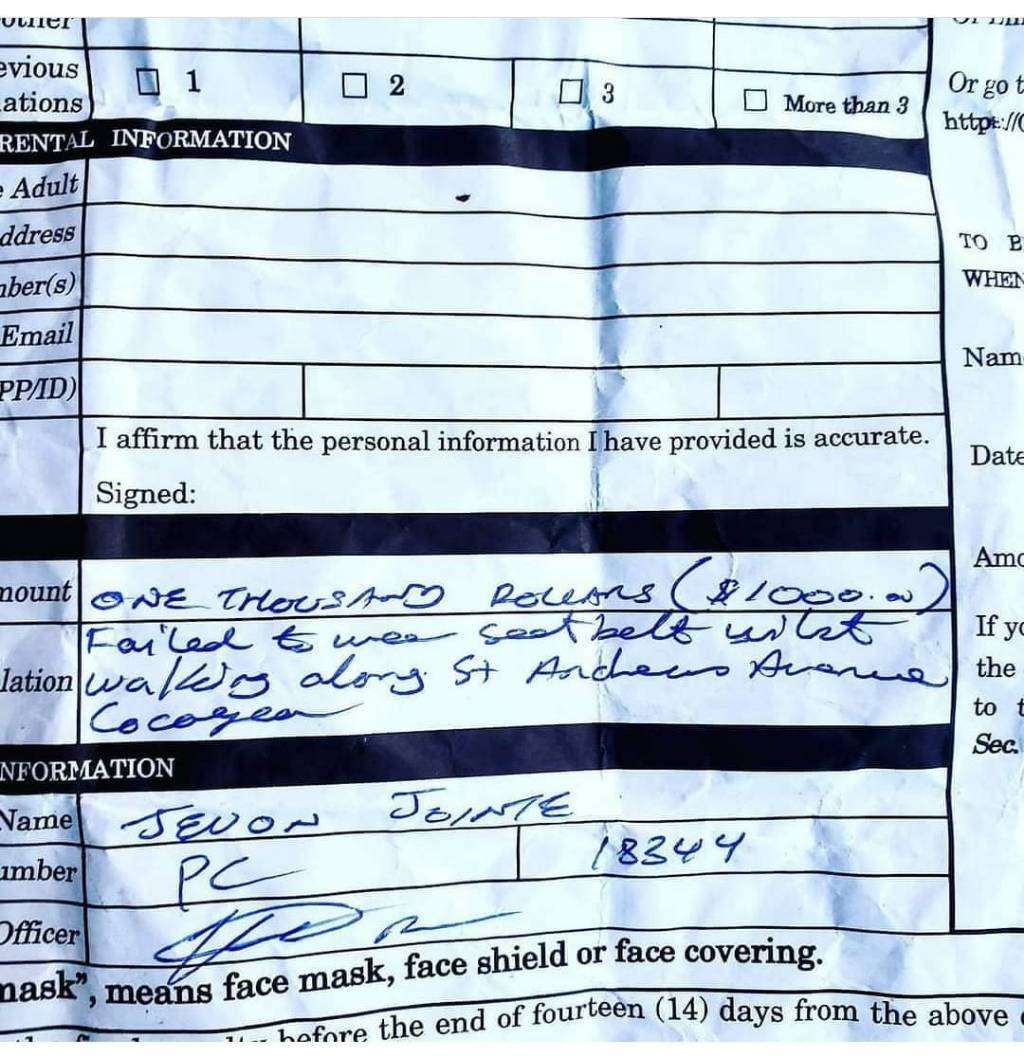 other
evious 1 2 3 More than 3
ations
RENTAL INFORMATION
Adult
ddress
nber(s)
Email
PP/ID)
I affirm that the personal information I have provided is accurate.
Signed:
mount ONE THOUSAND DOLLARS ($1000.00)
Failed to wear seatbelt wilst
lation walking along St Andrews Avenue
Cocoyea
NFORMATION
Name JEVON JOINTE
umber PC 18344
Officer
mask", means face mask, face shield or face covering.
before the end of fourteen (14) days from the above
Or go t
https://
TO B
WHEN
Nam
Date
Amo
If yo
the
to t
Sec.